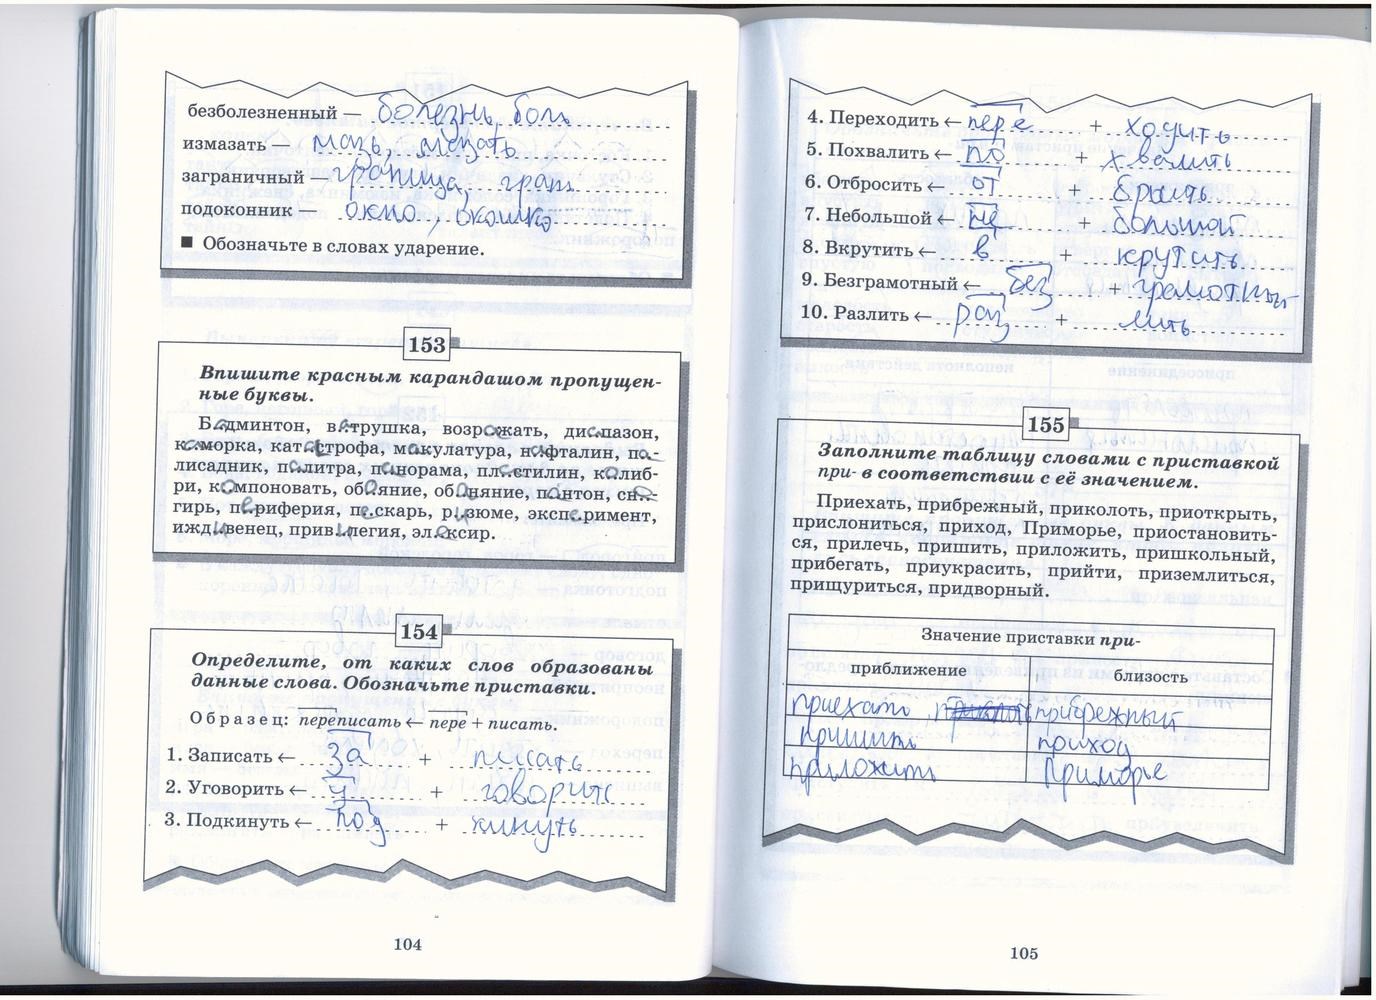 безболезненный — болезнь, боль
измазать — мазь, мазать
заграничный — граница, гран
подоконник — окно, окошко
■ Обозначьте в словах ударение.
153
Впишите красным карандашом пропущен-
ные буквы.
Бадминтон, ватрушка, возражать, диапазон,
каморка, катастрофа, макулатура, нафталин, па-
лисадник, палитра, панорама, пластилин, калиб-
ри, компоновать, обояние, обоняние, пантон, сне-
гирь, периферия, пескарь,ризюме, эксперимент,
иждивенец, привилегия, элексир.
154
Определите, от каких слов образованы
данные слова. Обозначьте приставки.
Образец: переписать ← пере + писать.
1. Записать ← за + писать
2. Уговорить ← у + говорить
3. Подкинуть ← под + кинуть
104
4. Переходить ← пере + ходить
5. Похвалить ← по + хвалить
6. Отбросить ← от + бросить
7. Небольшой ← не + большой
8. Вкрутить ← в + крутить
9. Безграмотный ← без + грамотный
10. Разлить ← раз + лить
155
Заполните таблицу словами с приставкой
при- в соответствии с её значением.
Приехать, прибрежный, приколоть, приоткрыть,
прислониться, приход, Приморье, приостановить-
ся, прилечь, пришить, приложить, пришкольный,
прибегать, приукрасить, прийти, приземлиться,
прищуриться, придворный.
Значение приставки при-
приближение близость
приехать прибрежный
пришить приход
приложить Приморье
105